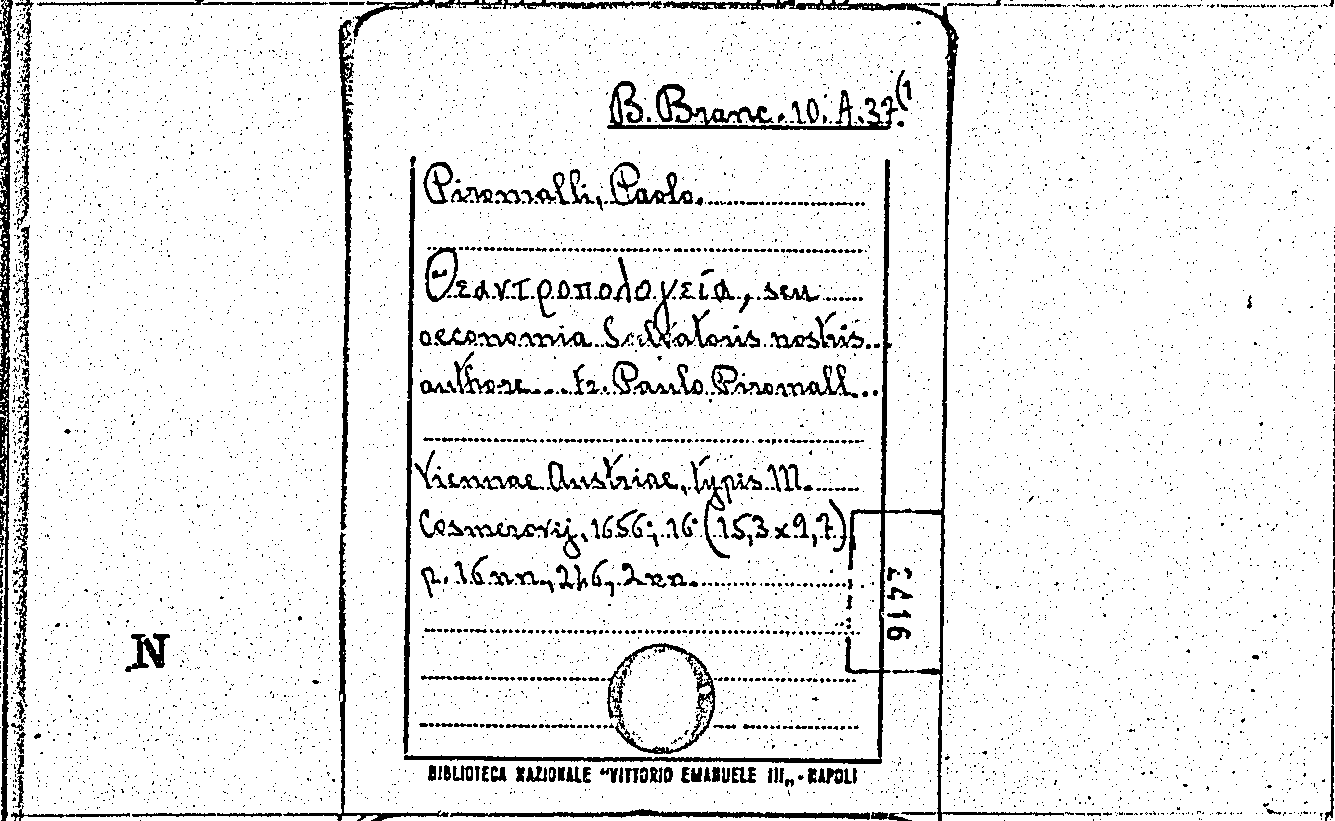 B. Branc. 10. A. 37.(1
Piromalli, Paolo.
Θεαντροπολογεία, seu
oeconomia Salvatoris nostris..
authore... Fr. Paulo Piromall...
Viennae Austriae, typis M.
Cosmerovij, 1656; 16° (15,3 x 9,7)
p. 16 nn., 246, 2 nn.
N
BIBLIOTECA NAZIONALE "VITTORIO EMANUELE III„ - NAPOLI